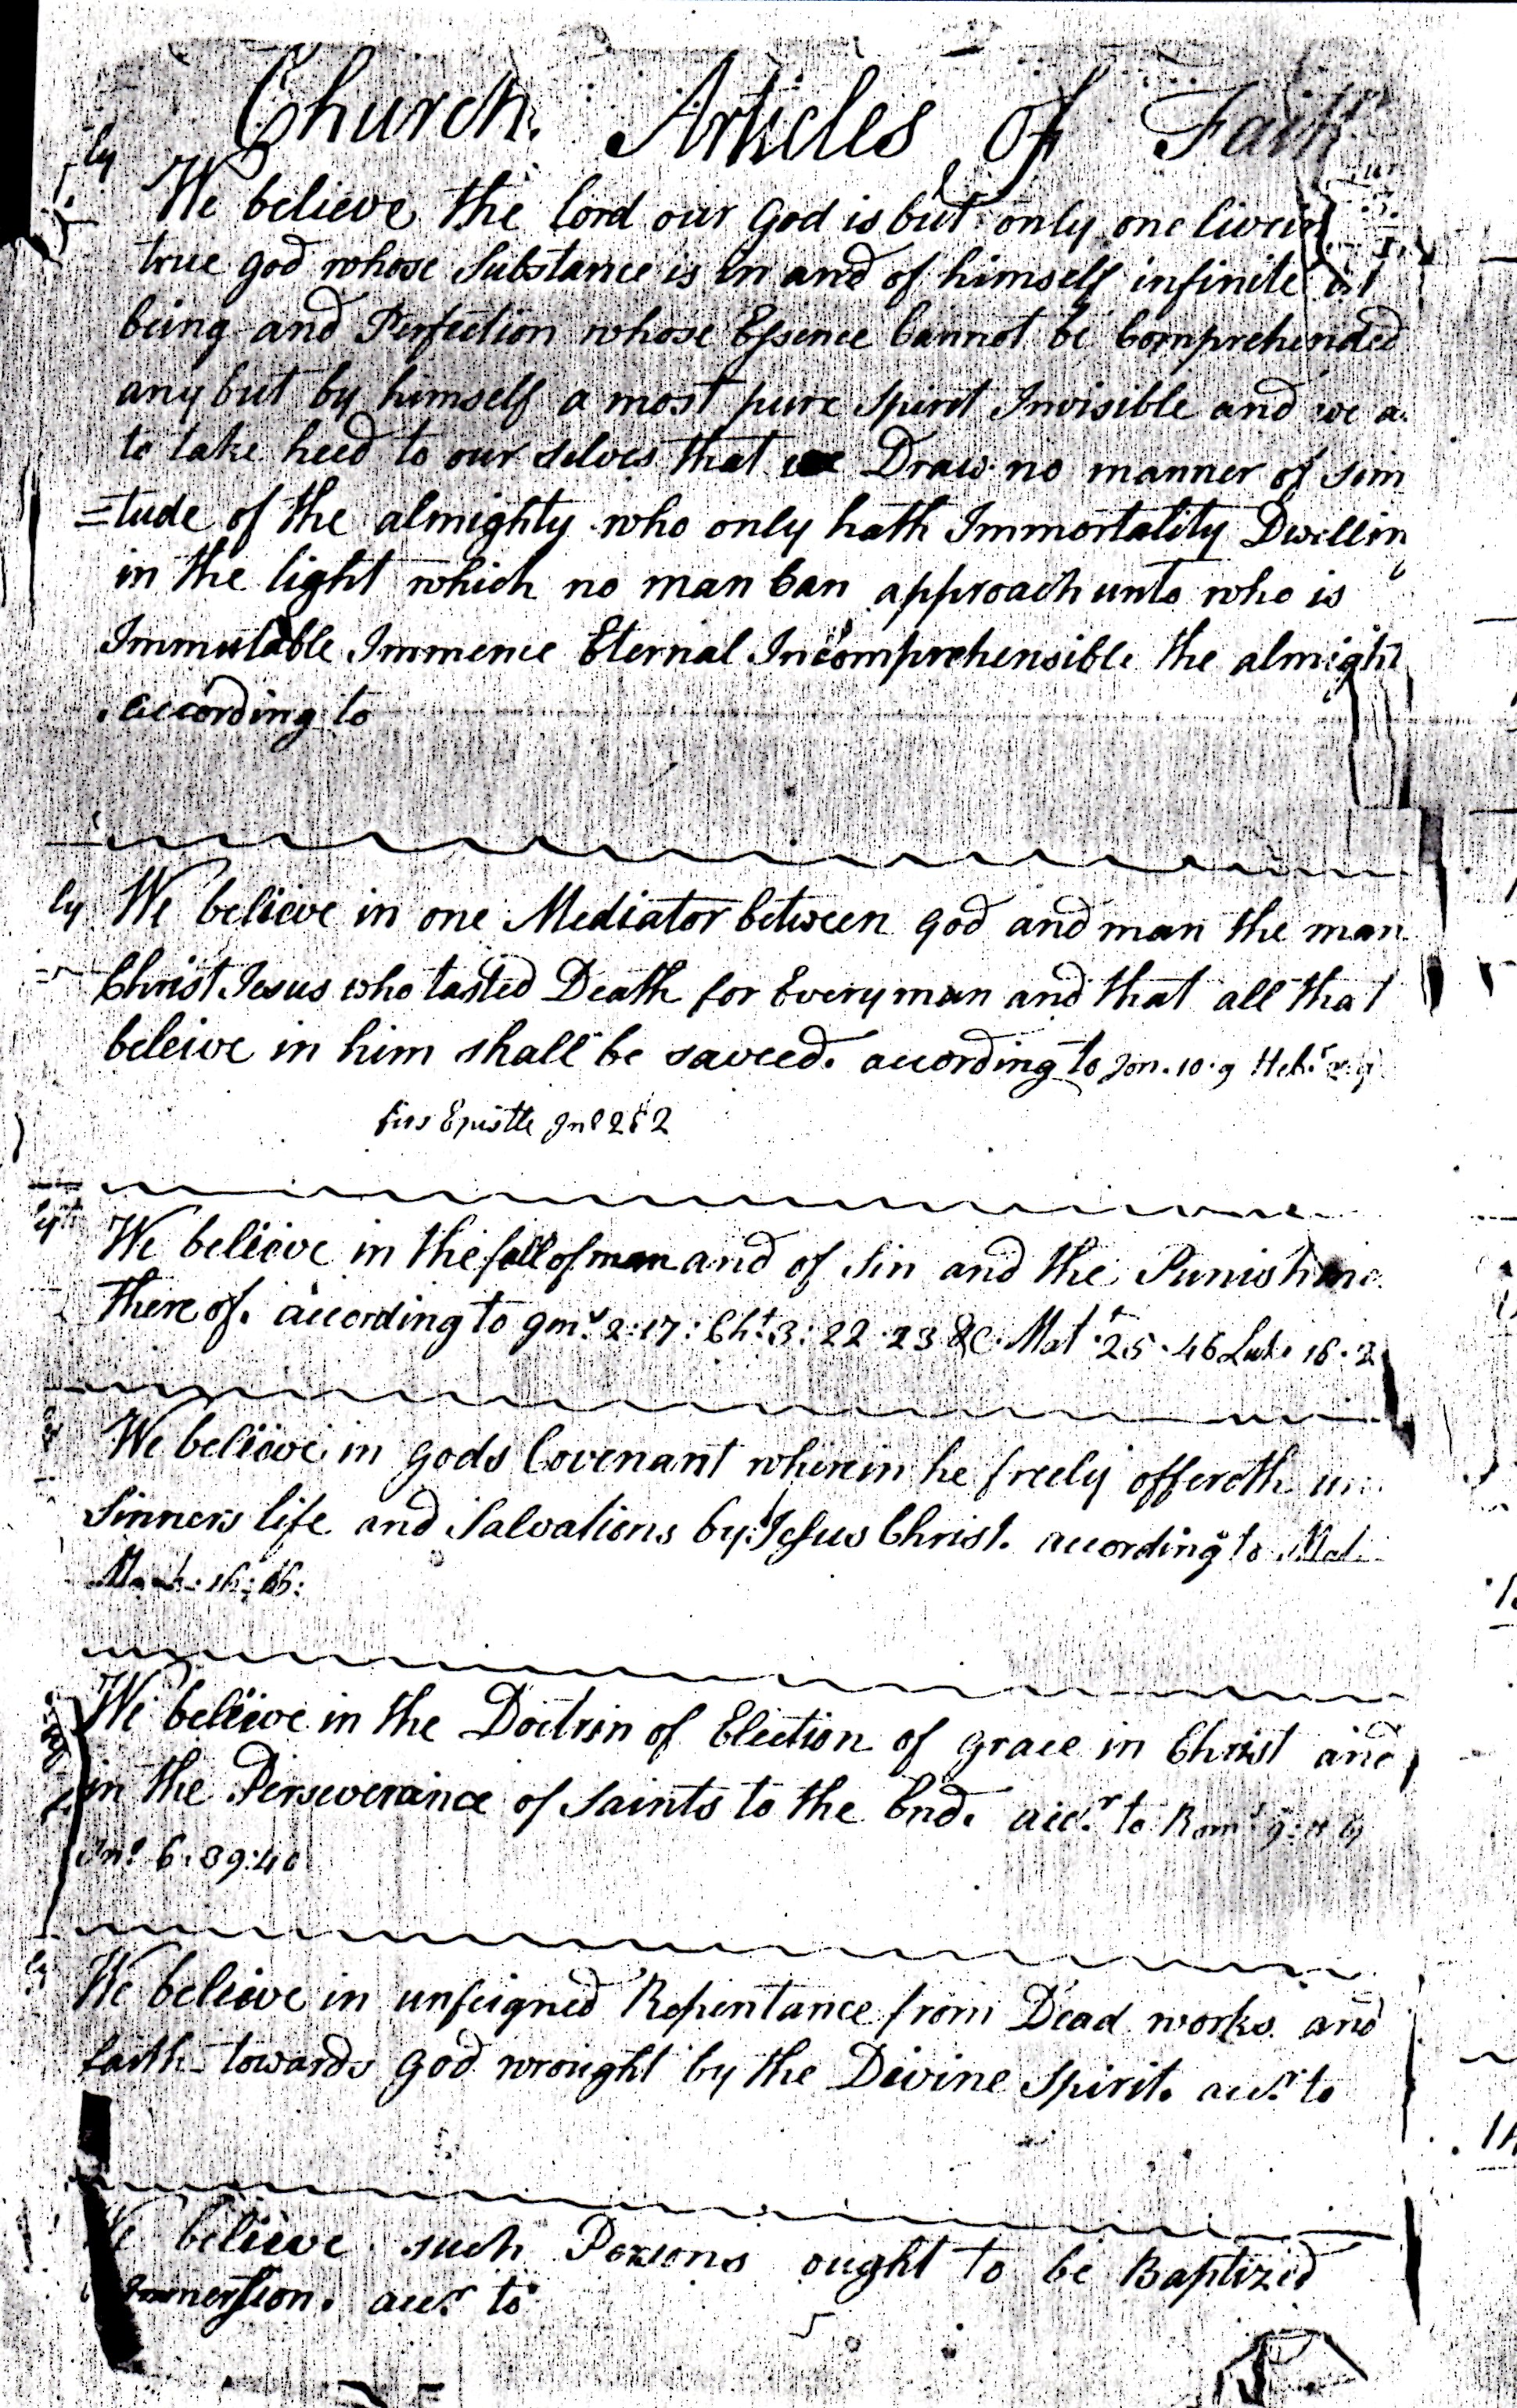 Church Articles of Faith
ly We believe the Lord our God is but only one livein
true god whose Substance is in and of himself infinite in
being and Perfection whose Essence Cannot be Comprehended
any but by himself a most pure spirit Invisible and we a
to take heed to our selves that we Draw no manner of sim
=tude of the almighty who only hath Immortality Dwellin
in the light which no man Can approach unto who is
Immutable Immence Eternal Incomprehensible the almight
according to
ly We believe in one Mediator between god and man the man
Christ Jesus who tasted Death for Every man and that all that
beleive in him shall be saveed. according to Jon. 10.9 Hebr 2.9
firs Epistle Jno 2 & 2
We believe in the fall of man and of Sin and the Punishme
there of. according to gns 2:17: Cht 3:22.23 &c. Mat 25.46 Luk. 16.2
We believe in gods Covenant wherein he freely offereth
Sinners life and Salvations by Jesus Christ. according to Mat
Mark. 16:16:
We believe in the Doctrin of Election of grace in Christ and
in the Perseverance of Saints to the End. accr to Roms 9:
Jno 6:39:40
We believe in unfeigned Repentance from Dead works and
faith towards god wrought by the Divine Spirit. accr to
We believe such Persons ought to be Baptized
Immersion. accr to